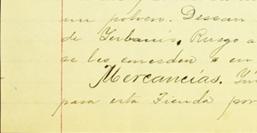 un polvon. Desean
de Terbanis, Riesgo a
se les enciendan a en
Mercancías.
para esta Tienda por